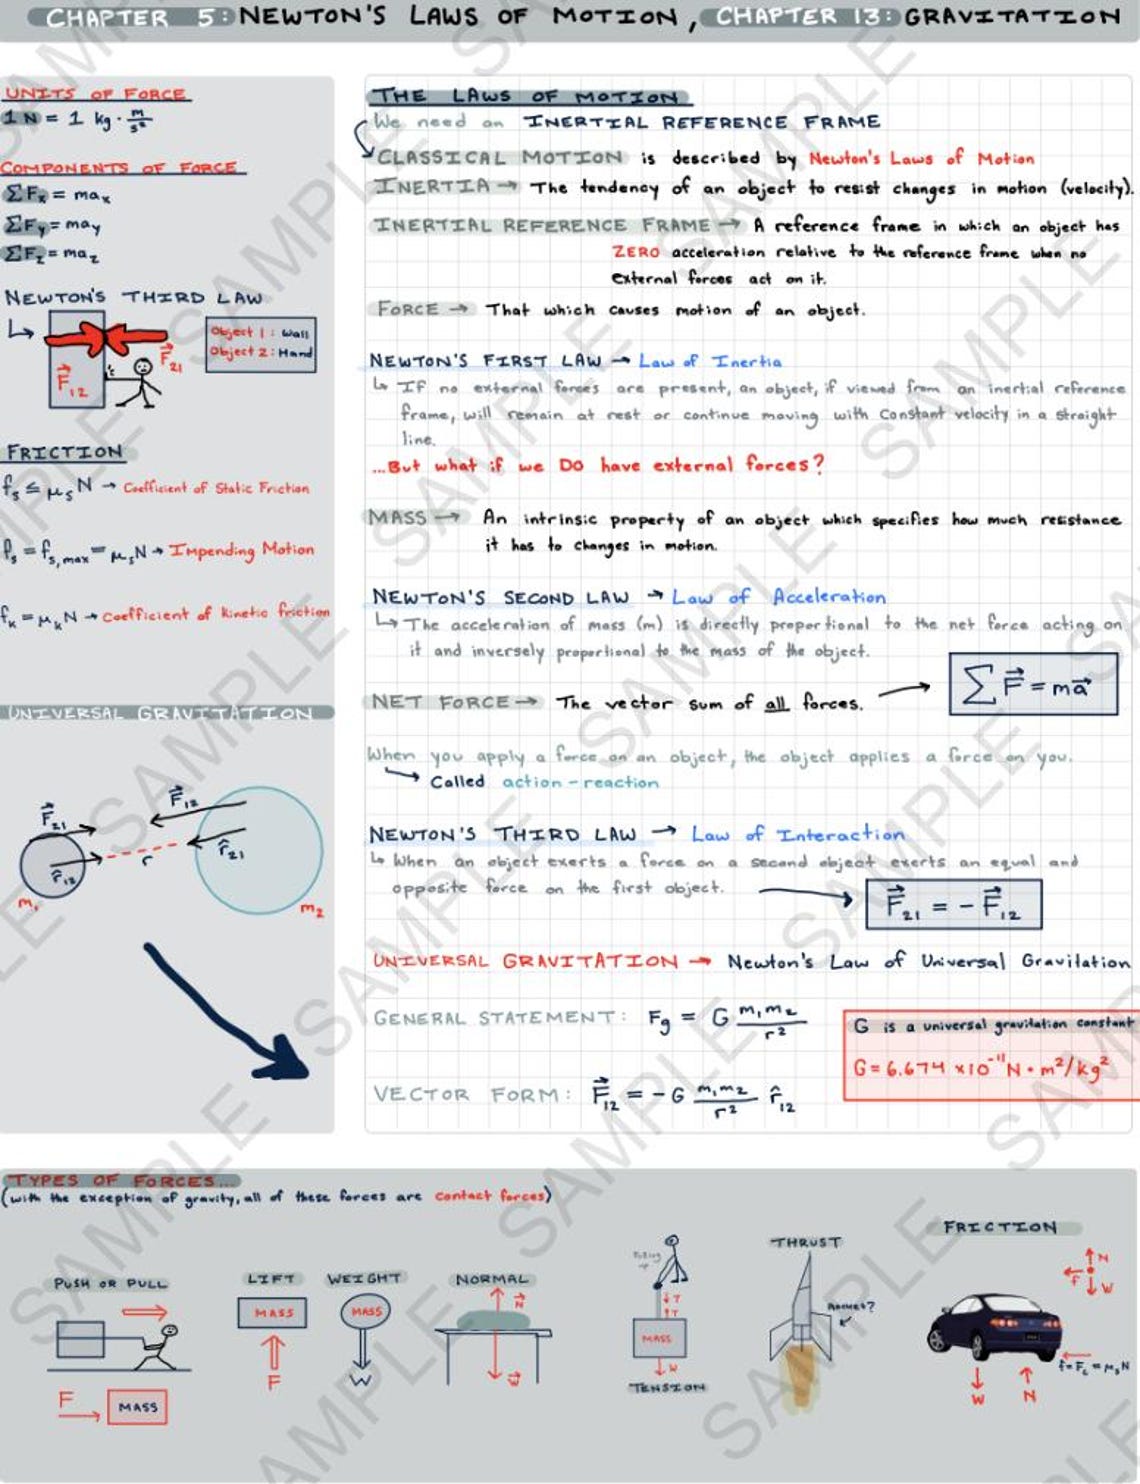 CHAPTER 5: NEWTON'S LAWS OF MOTION, CHAPTER 13: GRAVITATION
UNITS OF FORCE
1 N = 1 kg · m/s²
COMPONENTS OF FORCE
ΣFx = max
ΣFy = may
ΣFz = maz
NEWTON'S THIRD LAW
Object 1: Wall
Object 2: Hand
F⃗12
F⃗21
FRICTION
fs ≤ μsN → Coefficient of Static Friction
fs = fs,max = μsN → Impending Motion
fk = μkN → Coefficient of kinetic friction
UNIVERSAL GRAVITATION
F⃗21
F⃗12
r̂12
r
r̂21
m1
m2
THE LAWS OF MOTION
We need an INERTIAL REFERENCE FRAME
CLASSICAL MOTION is described by Newton's Laws of Motion
INERTIA → The tendency of an object to resist changes in motion (velocity).
INERTIAL REFERENCE FRAME → A reference frame in which an object has
ZERO acceleration relative to the reference frame when no
external forces act on it.
FORCE → That which causes motion of an object.
NEWTON'S FIRST LAW → Law of Inertia
↳ If no external forces are present, an object, if viewed from an inertial reference
frame, will remain at rest or continue moving with constant velocity in a straight
line.
...But what if we DO have external forces?
MASS → An intrinsic property of an object which specifies how much resistance
it has to changes in motion.
NEWTON'S SECOND LAW → Law of Acceleration
↳ The acceleration of mass (m) is directly proportional to the net force acting on
it and inversely proportional to the mass of the object.
NET FORCE → The vector sum of all forces. → ΣF⃗ = ma⃗
When you apply a force on an object, the object applies a force on you.
→ Called action-reaction
NEWTON'S THIRD LAW → Law of Interaction
↳ When an object exerts a force on a second object exerts an equal and
opposite force on the first object. → F⃗21 = -F⃗12
UNIVERSAL GRAVITATION → Newton's Law of Universal Gravitation
GENERAL STATEMENT: Fg = G m1m2/r²
G is a universal gravitation constant
G = 6.674 x10⁻¹¹ N · m²/kg²
VECTOR FORM: F⃗12 = -G m1m2/r² r̂12
TYPES OF FORCES...
(with the exception of gravity, all of these forces are contact forces)
PUSH OR PULL
F
MASS
LIFT
MASS
F
WEIGHT
MASS
W
NORMAL
N⃗
W⃗
T
T
MASS
W
TENSION
THRUST
FRICTION
N
f
W
W
N
SAMPLE
SAMPLE
SAMPLE
SAMPLE
SAMPLE
SAMPLE
SAMPLE
SAMPLE
SAMPLE
SAMPLE
SAMPLE
SAMPLE